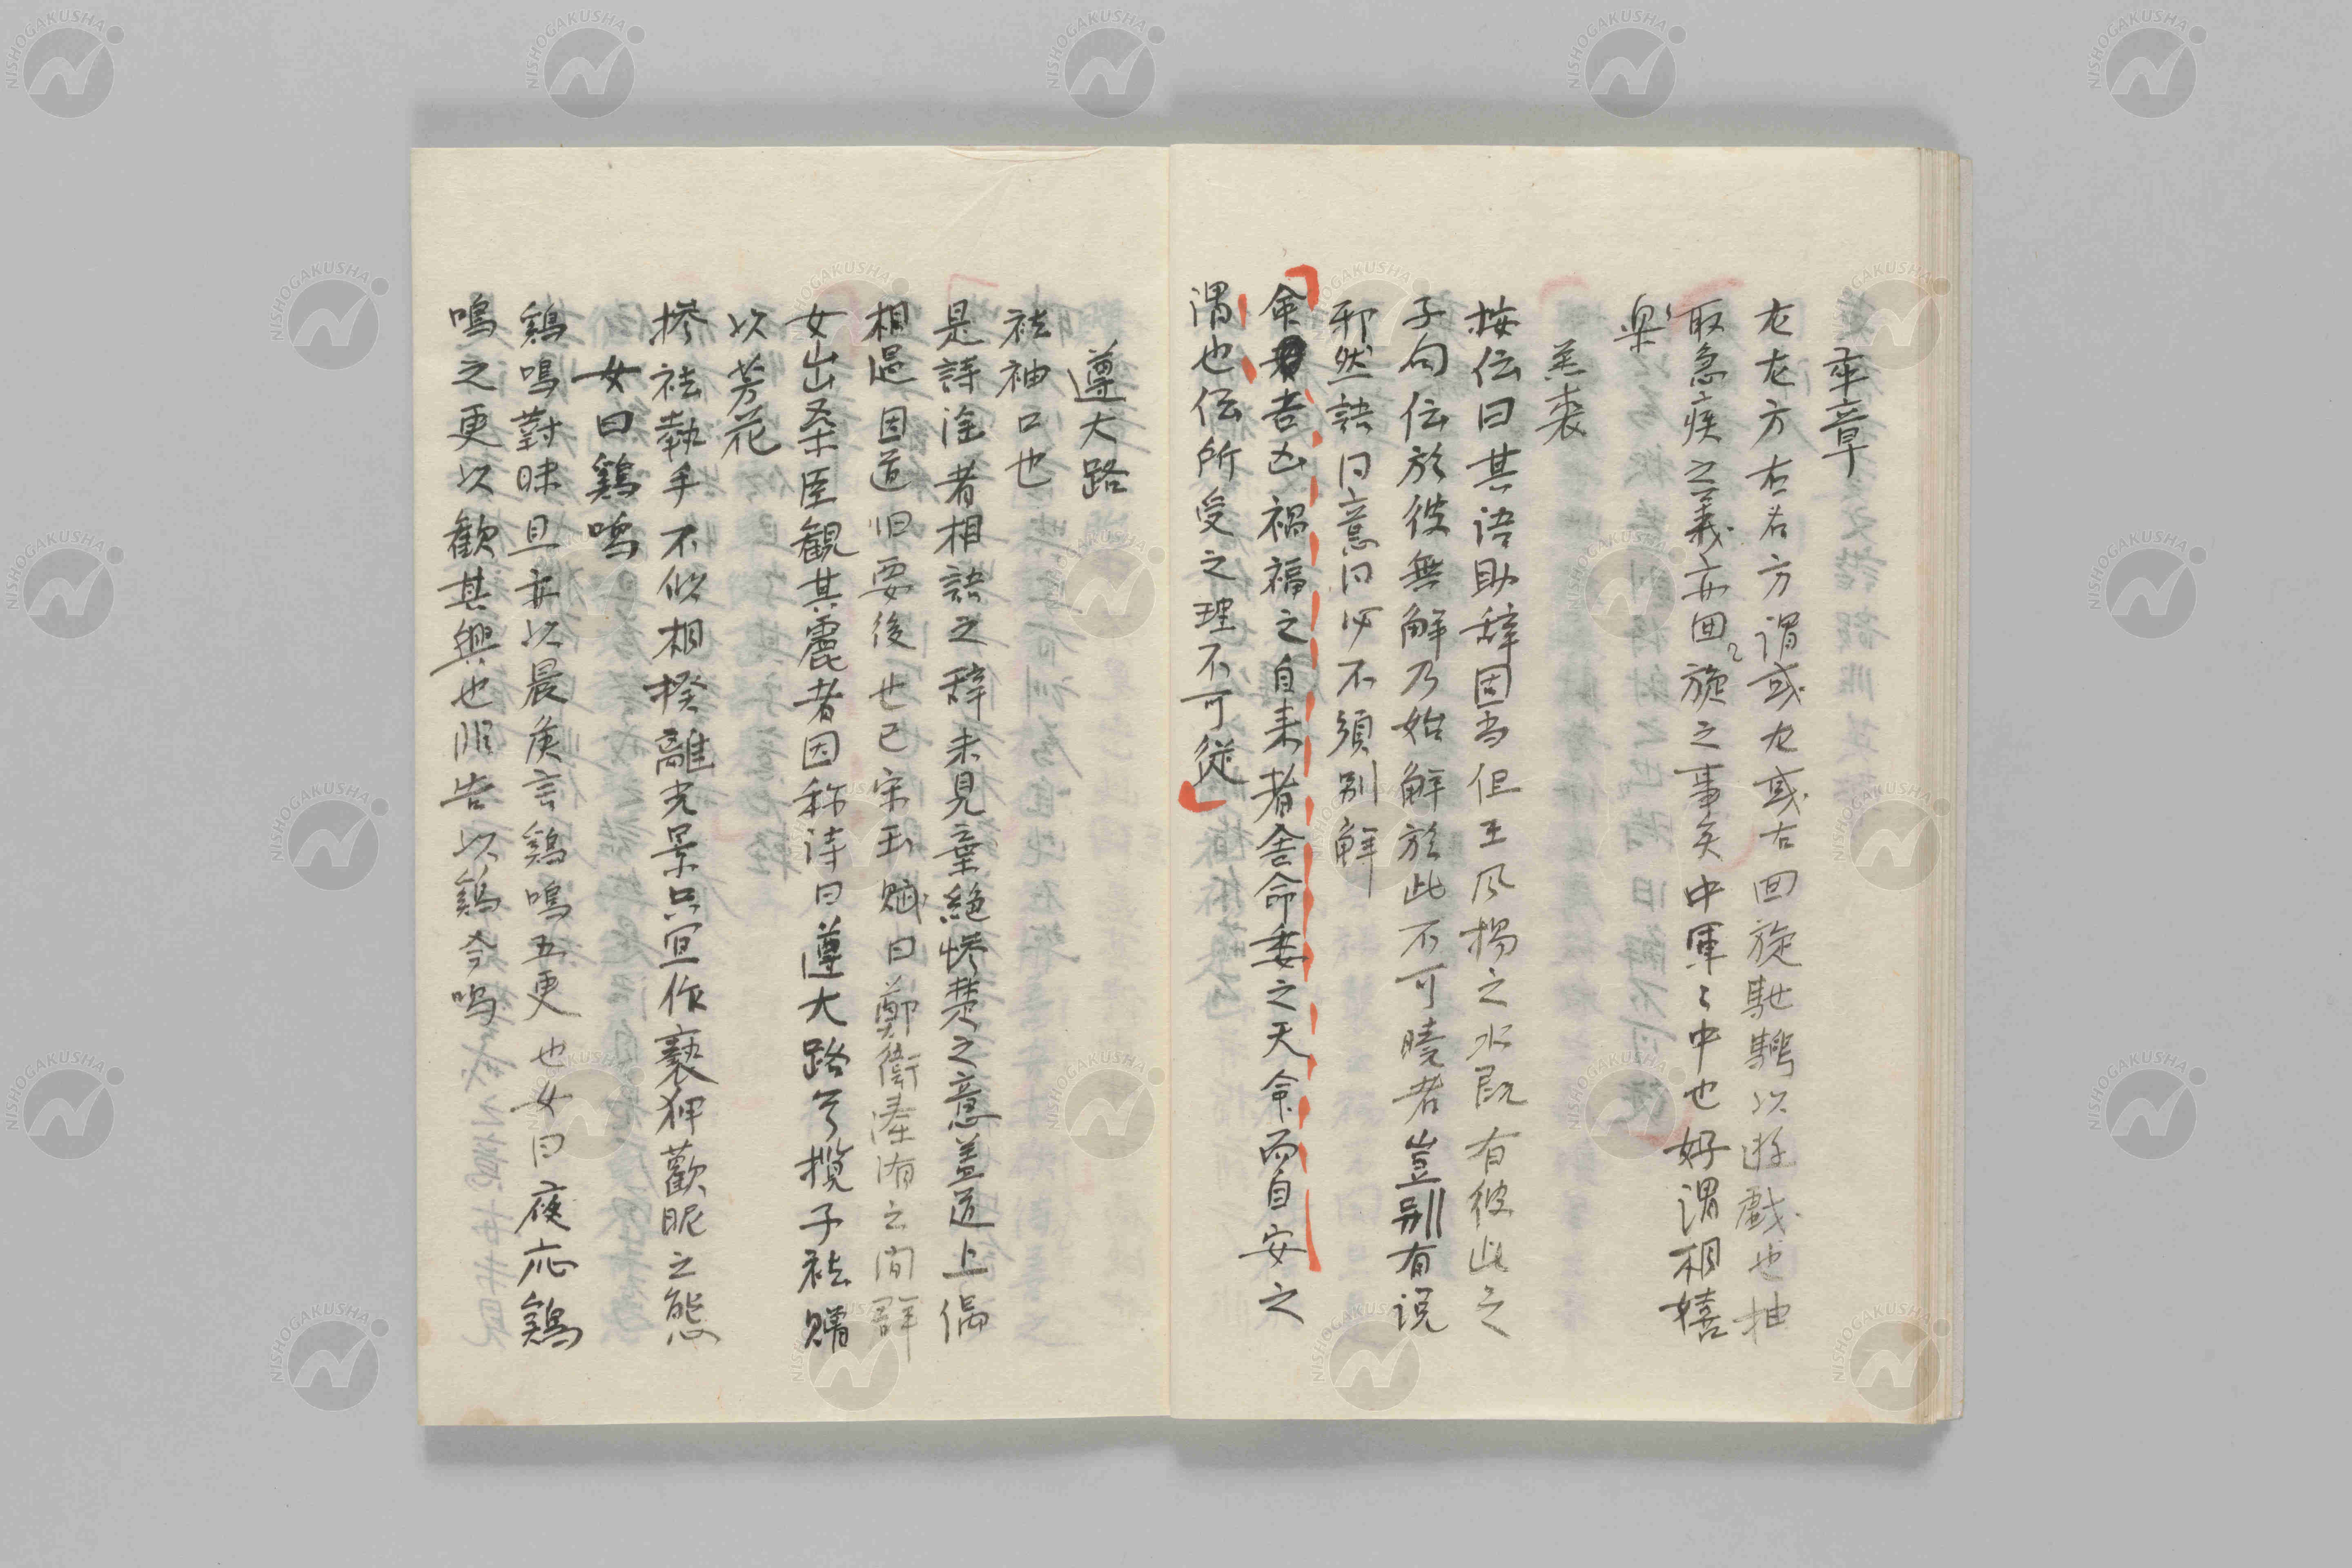 卒章
左左方右右方謂或左或右回旋馳騁以遊戲也抽
取急疾之義亦回旋之事矣中軍々中也好謂相嬉
楽
羔裘
按伝曰其語助辞固当但王風揚之水既有彼此之
子句伝於彼無解乃始解於此不可暁者豈別有説
邪然訣曰意曰必不須別解
命吉凶禍福之自来者舎命委之天命而自安之
謂也伝所受之理不可従
遵大路
袪袖口也
是詩淫者相訣之辞未見棄絶惨楚之意蓋道上偶
相遇因道旧要後世已宋玉賦曰鄭衛溱洧之間群
女出桑臣観其麗者因称詩曰遵大路兮攬子袪贈
以芳花
摻袪執手不似相揆離光景只宜作褻狎歡昵之態
女曰鶏鳴
鶏鳴對昧旦亦以晨候言鶏鳴五更也女曰夜応鶏
鳴之更以歓其興也明告以鶏今鳴
NISHOGAKUSHA